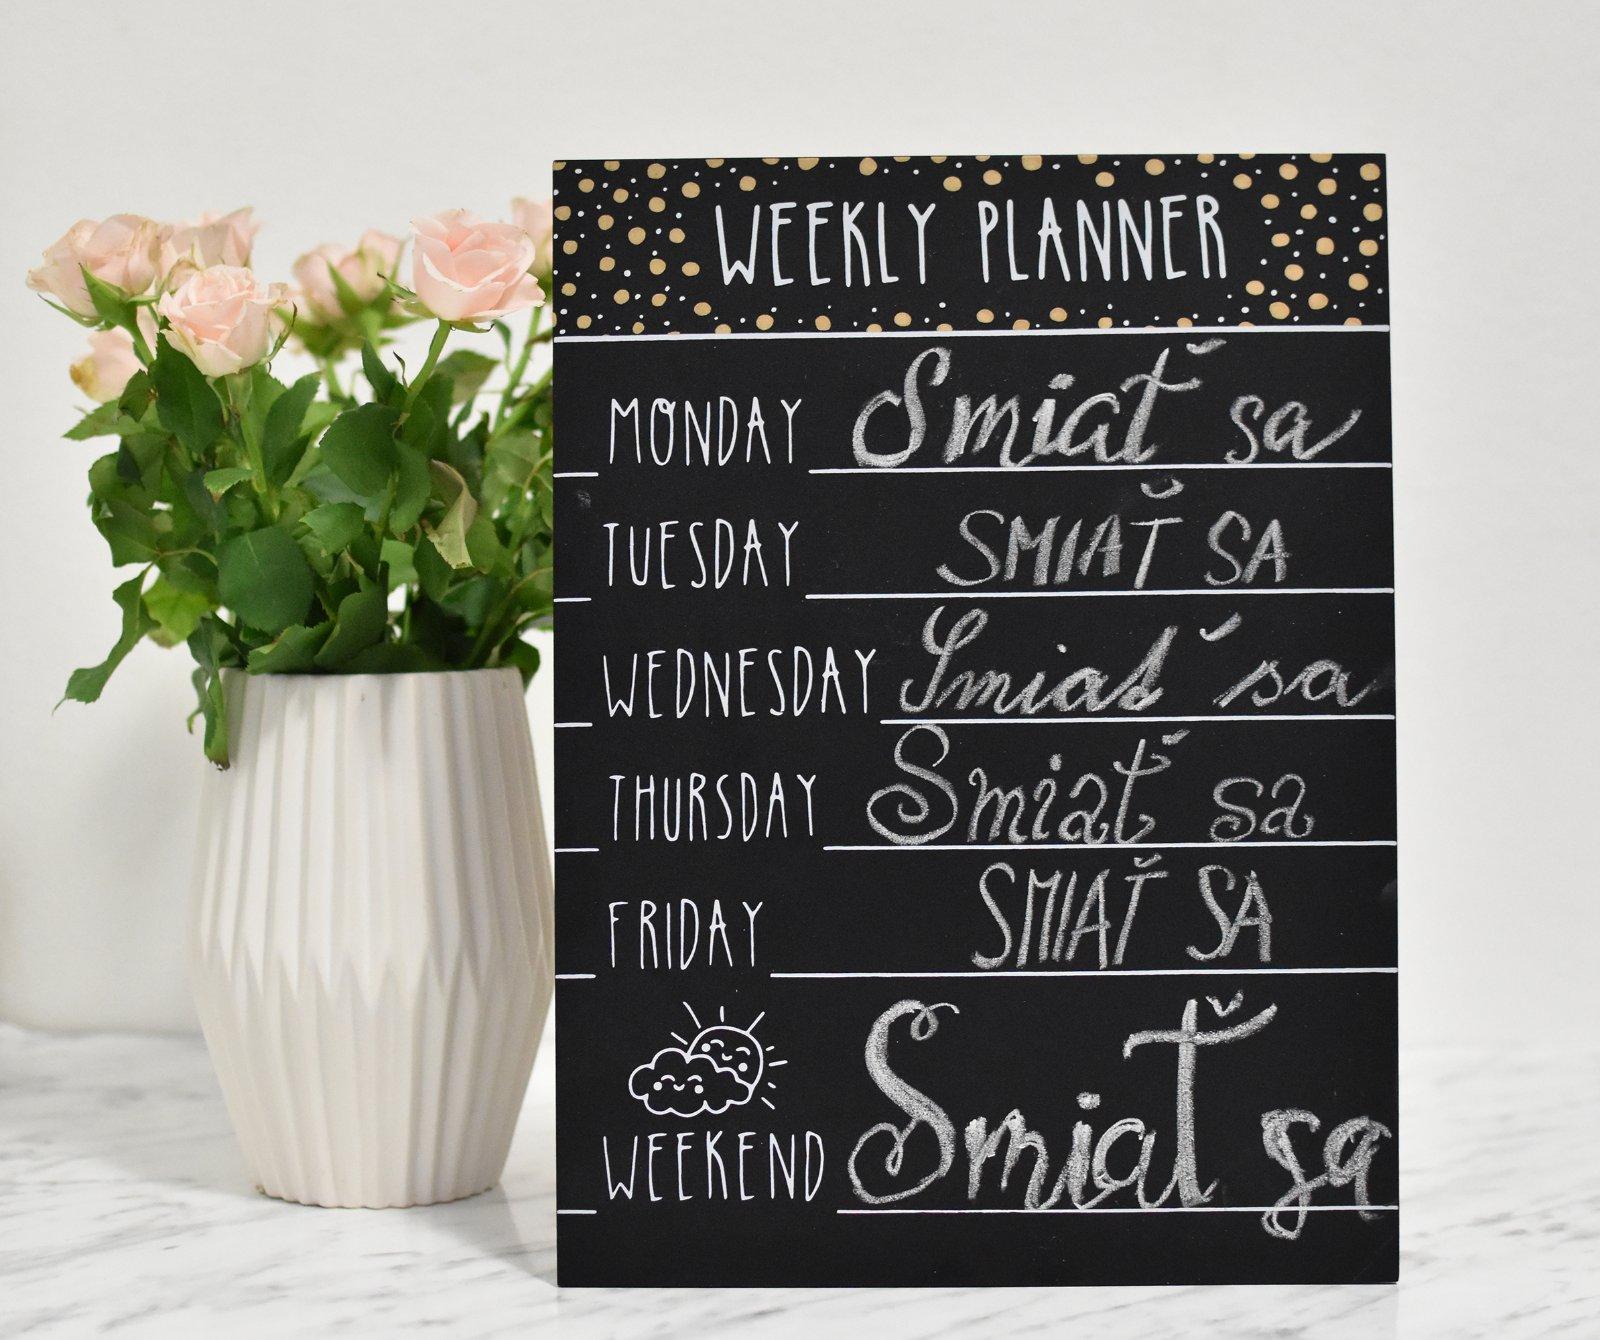 WEEKLY PLANNER
MONDAY Smiať sa
TUESDAY SMIAŤ SA
WEDNESDAY Smiať sa
THURSDAY Smiať sa
FRIDAY SMIAŤ SA
WEEKEND Smiať sa